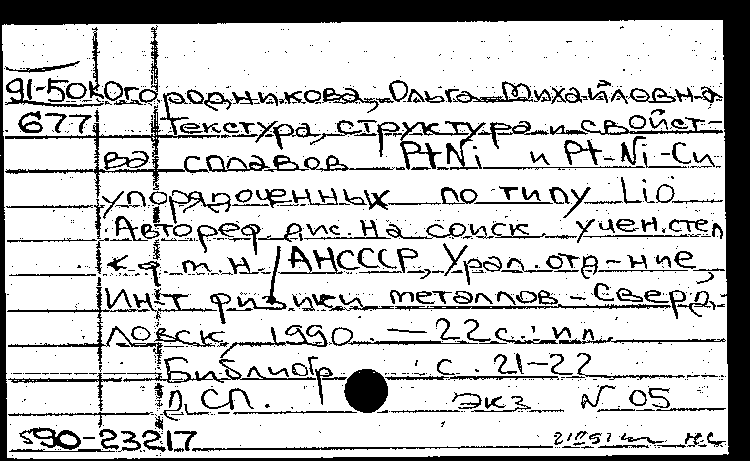 91-50к Огородникова, Ольга Михайловна
677 Текстура, структура и свойст-
ва сплавов PtNi и Pt-Ni-Cu
упорядоченных по типу L1o
Автореф дис. на соиск учен.степ
к.ф.м.н. / АНСССР, Урал.отд-ние,
Ин-т физики металлов - Сверд-
ловск, 1990. — 22с.: ил.
Библиогр : с. 21-22
Д.СП. Экз N 05
$90-23217